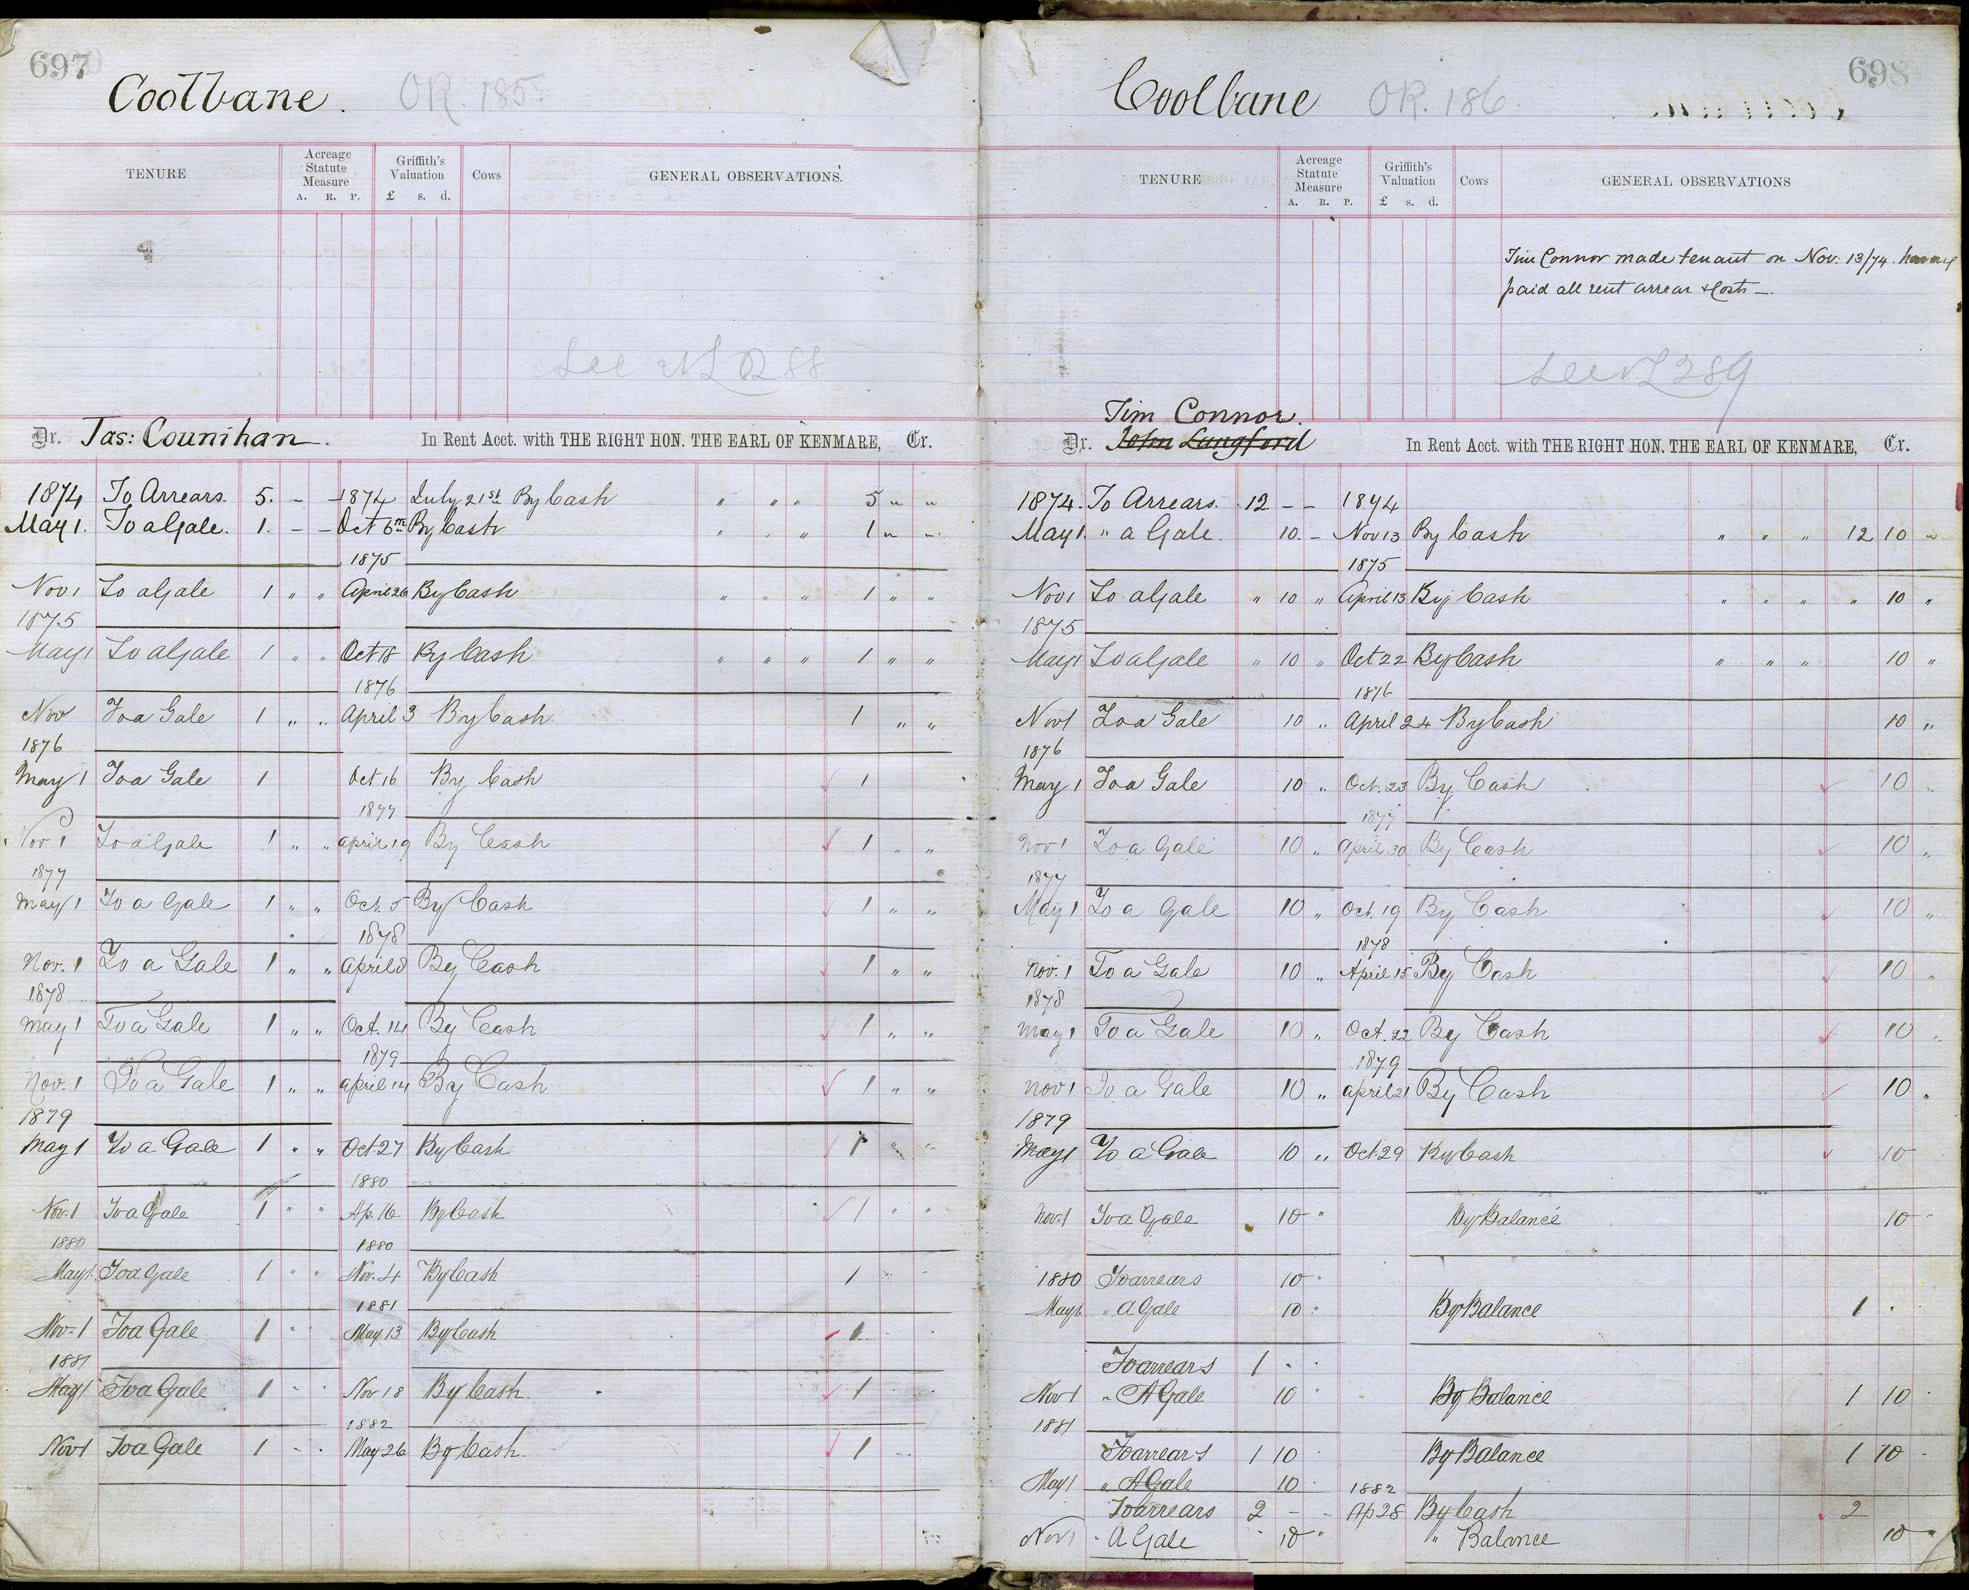 697
Coolbane. OR. 185
TENURE Acreage Statute Measure A. R. P. Griffith's Valuation £ s. d. Cows GENERAL OBSERVATIONS.
See NL 288
Dr. Jas: Counihan. In Rent Acct. with THE RIGHT HON. THE EARL OF KENMARE, Cr.
1874 To Arrears. 5. - - 1874 July 21st By Cash " " " 5 " "
May 1. To a Gale. 1. - - Oct 6th By Cash " " " 1 " "
1875
Nov 1 To a Gale 1 " " April 26 By Cash " " " 1 " "
1875
May 1 To a Gale 1 " " Oct 18 By Cash " " " 1 " "
1876
Nov To a Gale 1 " " April 3 By Cash 1 " "
1876
May 1 To a Gale 1 Oct 16 By Cash ✓ 1
1877
Nov 1 To a Gale 1 " " April 19 By Cash ✓ 1 " "
1877
May 1 To a Gale 1 " " Oct. 5 By Cash ✓ 1 " "
1878
Nov. 1 To a Gale 1 " " April 8 By Cash ✓ 1 " "
1878
May 1 To a Gale 1 " " Oct. 14 By Cash ✓ 1 " "
1879
Nov. 1 To a Gale 1 " " April 14 By Cash ✓ 1 " "
1879
May 1 To a Gale 1 " " Oct 27 By Cash ✓ 1 " "
1880
Nov. 1 To a Gale 1 " " Ap. 16 By Cash ✓ 1 " "
1880 1880
May 1. To a Gale 1 " " Nov. 4 By Cash 1 " "
1881
Nov. 1 To a Gale 1 " " May 13 By Cash ✓ 1
1881
May 1 To a Gale 1 " " Nov 18 By Cash. ✓ 1
1882
Nov 1 To a Gale 1 - - May 26 By Cash. ✓ 1
698
Coolbane OR. 186.
TENURE Acreage Statute Measure A. R. P. Griffith's Valuation £ s. d. Cows GENERAL OBSERVATIONS
Tim Connor made tenant on Nov. 13/74. having
paid all rent arrear & Costs -.
See NL 289
Tim Connor.
Dr. John Langford In Rent Acct. with THE RIGHT HON. THE EARL OF KENMARE, Cr.
1874. To Arrears. 12 - - 1874
May 1. " a Gale. 10. - Nov 13 By Cash " " " 12 10 "
1875
Nov 1 To a Gale " 10 " April 13 By Cash " " " " 10 "
1875
May 1 To a Gale " 10 " Oct 22 By Cash " " " 10 "
1876
Nov 1 To a Gale 10 " April 24 By Cash 10 "
1876
May 1 To a Gale 10 " Oct. 23 By Cash ✓ 10 "
1877
Nov 1 To a Gale 10 " April 30 By Cash ✓ 10 "
1877
May 1 To a Gale 10 " Oct. 19 By Cash ✓ 10 "
1878
Nov. 1 To a Gale 10 " April 15 By Cash ✓ 10 "
1878
May 1 To a Gale 10 " Oct. 22 By Cash ✓ 10 "
1879
Nov 1 To a Gale 10 " April 21 By Cash ✓ 10 "
1879
May 1 To a Gale 10 " Oct. 29 By Cash ✓ 10
Nov. 1 To a Gale 10 " By Balance 10 "
1880 To arrears 10 "
May 1. " a Gale 10 " By Balance 1 "
To arrears 1 " "
Nov 1 " A Gale 10 " By Balance 1 10
1881
To arrears 1 10 By Balance 1 10 -
May 1 " A Gale 10 1882
To arrears 2 - - Ap 28 By Cash ✓ 2
Nov 1 " A Gale 10 " " Balance 10 "